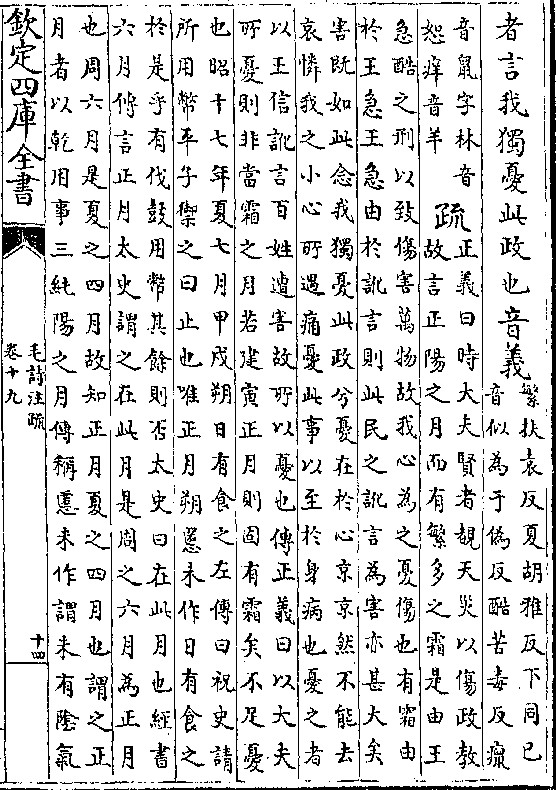 者言我獨憂此政也音義繁扶袁反夏胡雅反下同已
音似為于偽反酷苦毒反癙
音鼠字林音
恕痒音羊疏正義曰時大夫賢者覩天災以傷政教
故言正陽之月而有繁多之霜是由王
急酷之刑以致傷害萬物故我心為之憂傷也有霜由
於王急王急由於訛言則此民之訛言為害亦甚大矣
害既如此念我獨憂此政兮憂在於心京京然不能去
哀憐我之小心所遇痛憂此事以至於身病也憂之者
以王信訛言百姓遭害故所以憂也傳正義曰以大夫
所憂則非當霜之月若建寅正月則固有霜矣不足憂
也昭十七年夏七月甲戌朔日有食之左傳曰祝史請
所用幣平子禦之曰止也唯正月朔慝未作日有食之
於是乎有伐鼓用幣其餘則否太史曰在此月也經書
六月傳言正月太史謂之在此月是周之六月為正月
也周六月是夏之四月故知正月夏之四月也謂之正
月者以乾用事三純陽之月傳稱慝未作謂未有陰氣
欽定四庫全書
毛詩注疏
卷十九
十四